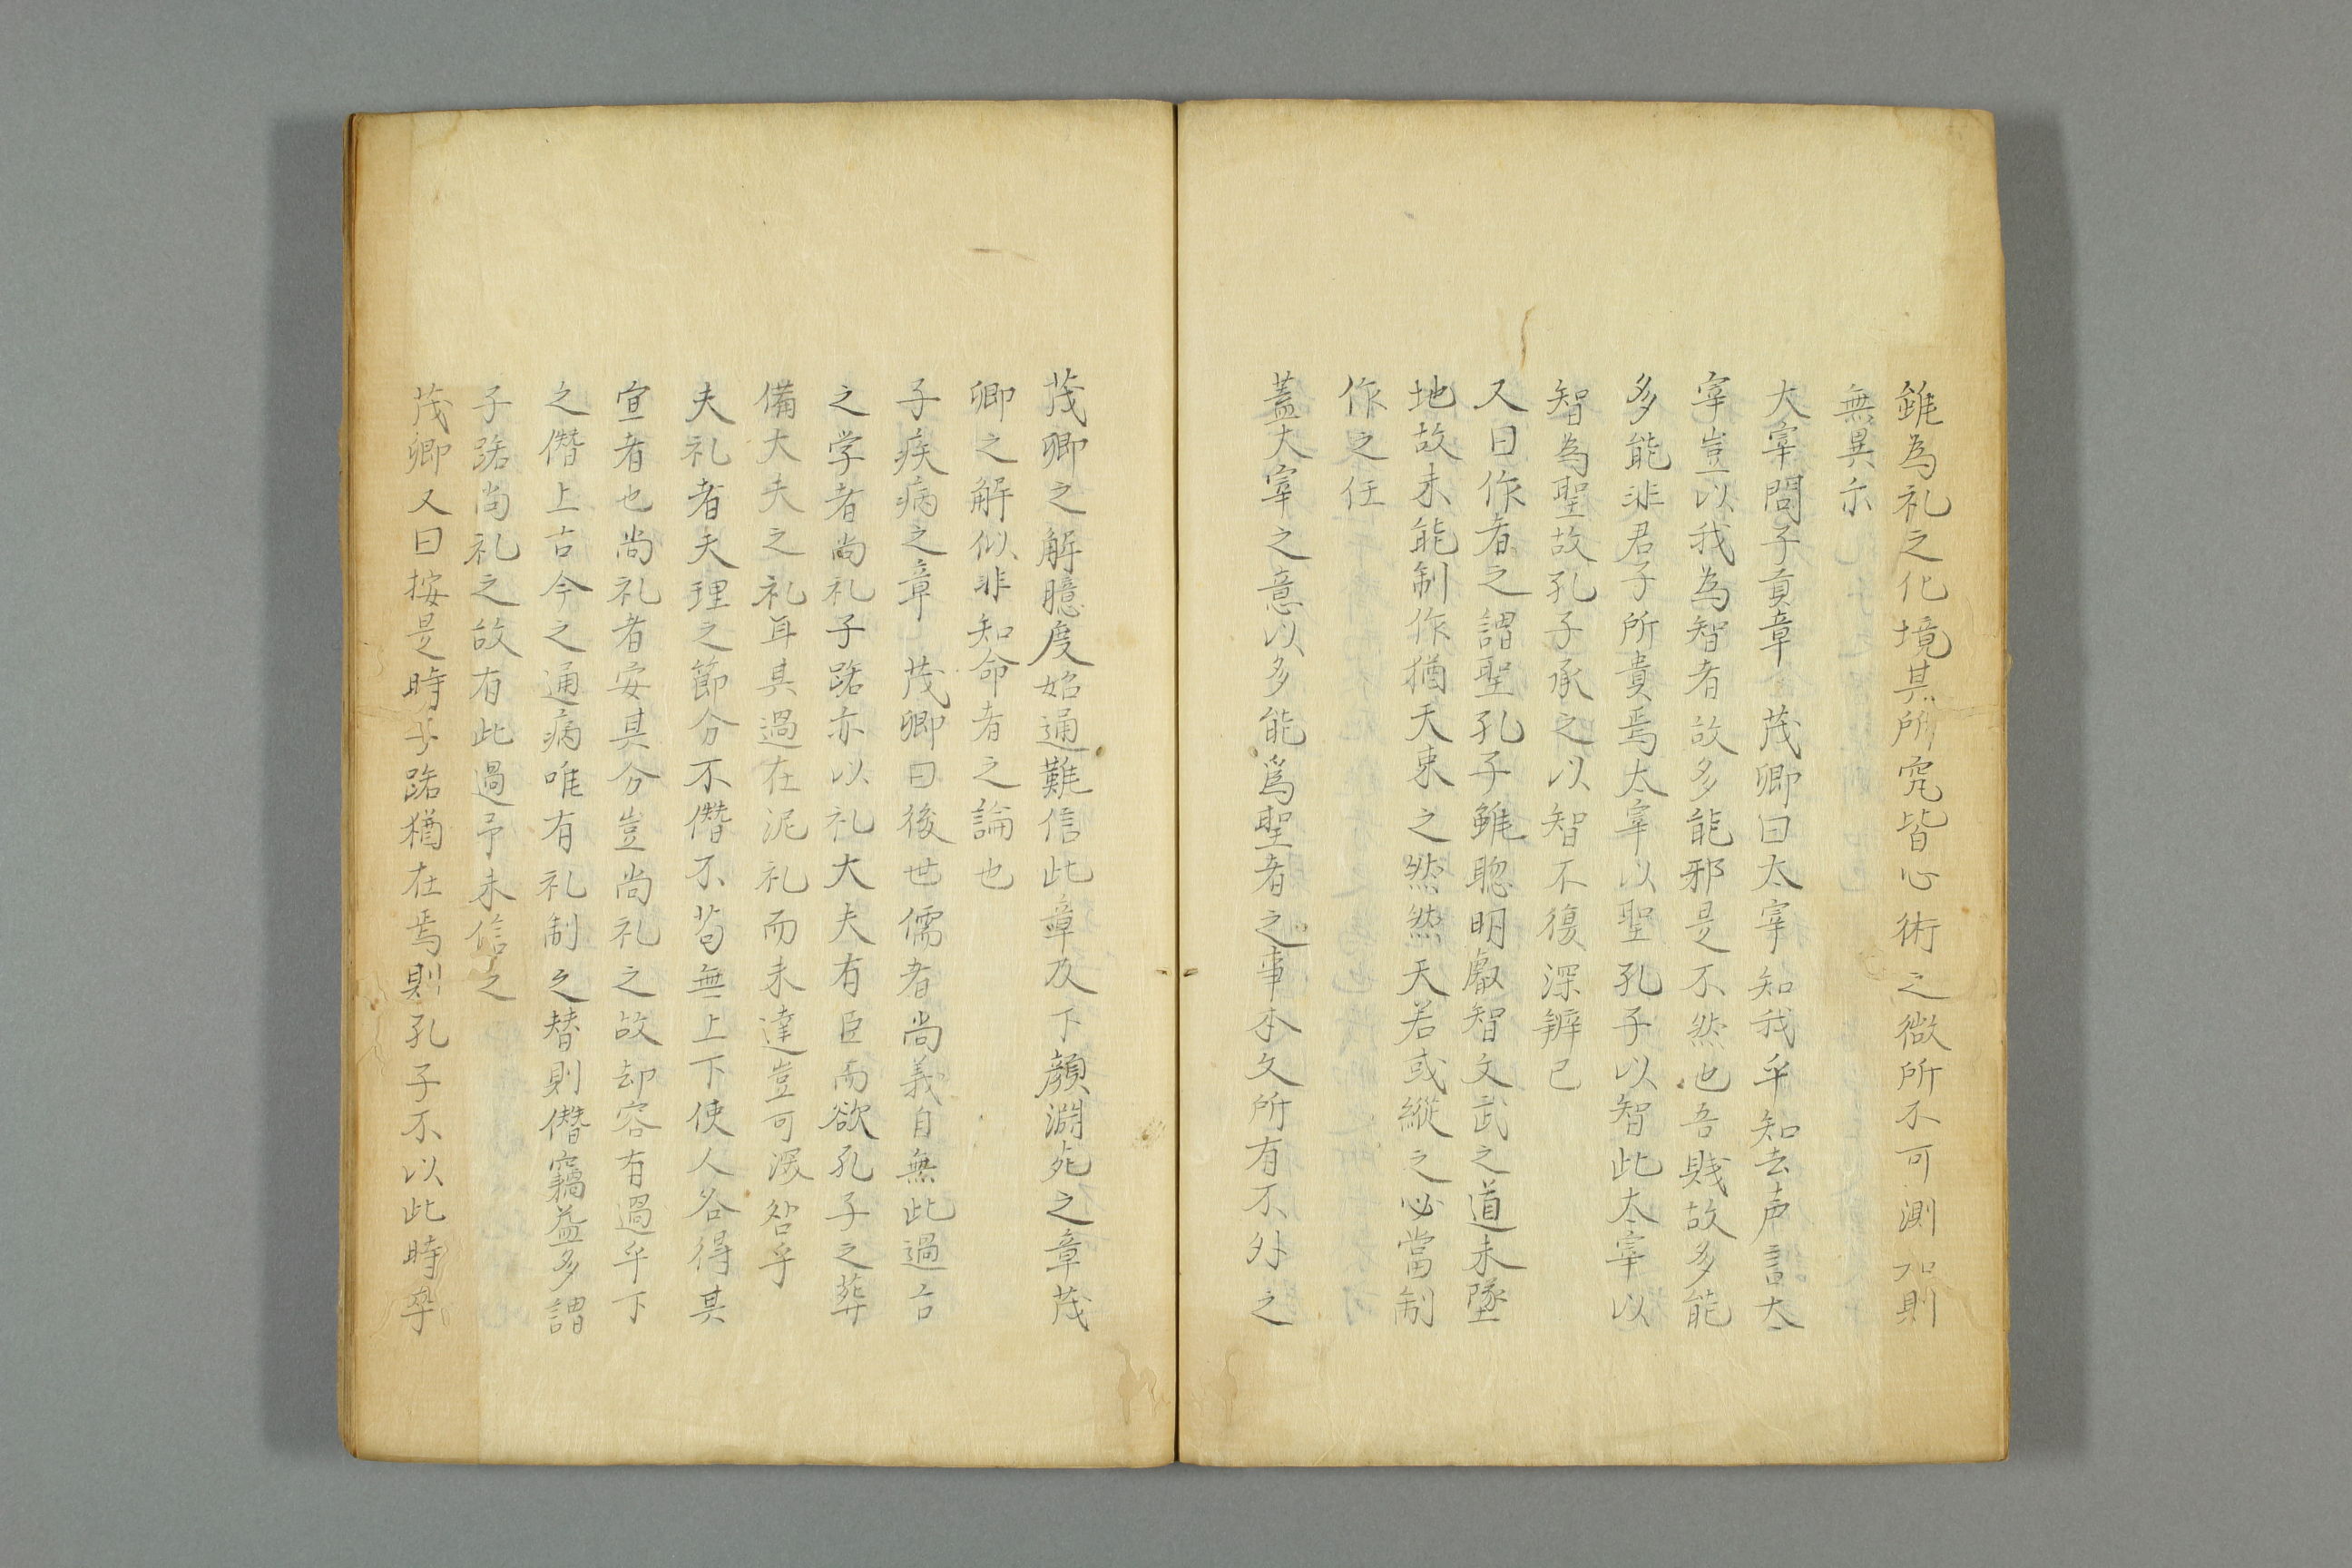 雖為礼之化境其所究皆心術之微所不可測知則
無異尒
大宰問子貢章 茂卿曰太宰知我乎知去声言太
宰豈以我為智者故多能邪是不然也吾賤故多能
多能非君子所貴焉太宰以聖孔子以智此太宰以
智為聖故孔子承之以智不復深辨已
又曰作者之謂聖孔子雖聡明叡智文武之道未墜
地故未能制作猶天未之然然天若或縱之必當制
作之任
蓋大宰之意以多能爲聖者之事本文所有不外之
茂卿之解臆度始通難信此章及下顔淵死之章茂
卿之解似非知命者之論也
子疾病之章 茂卿曰後世儒者尚義自無此過古
之学者尚礼子路亦以礼大夫有臣而欲孔子之葬
備大夫之礼耳其過在泥礼而未達豈可深咎乎
夫礼者天理之節分不僭不苟無上下使人各得其
宜者也尚礼者安其分豈尚礼之故却容有過乎下
之僭上古今之通病唯有礼制之替則僭竊益多謂
子路尚礼之故有此過予未信之
茂卿又曰按是時子路猶在焉則孔子不以此時卒